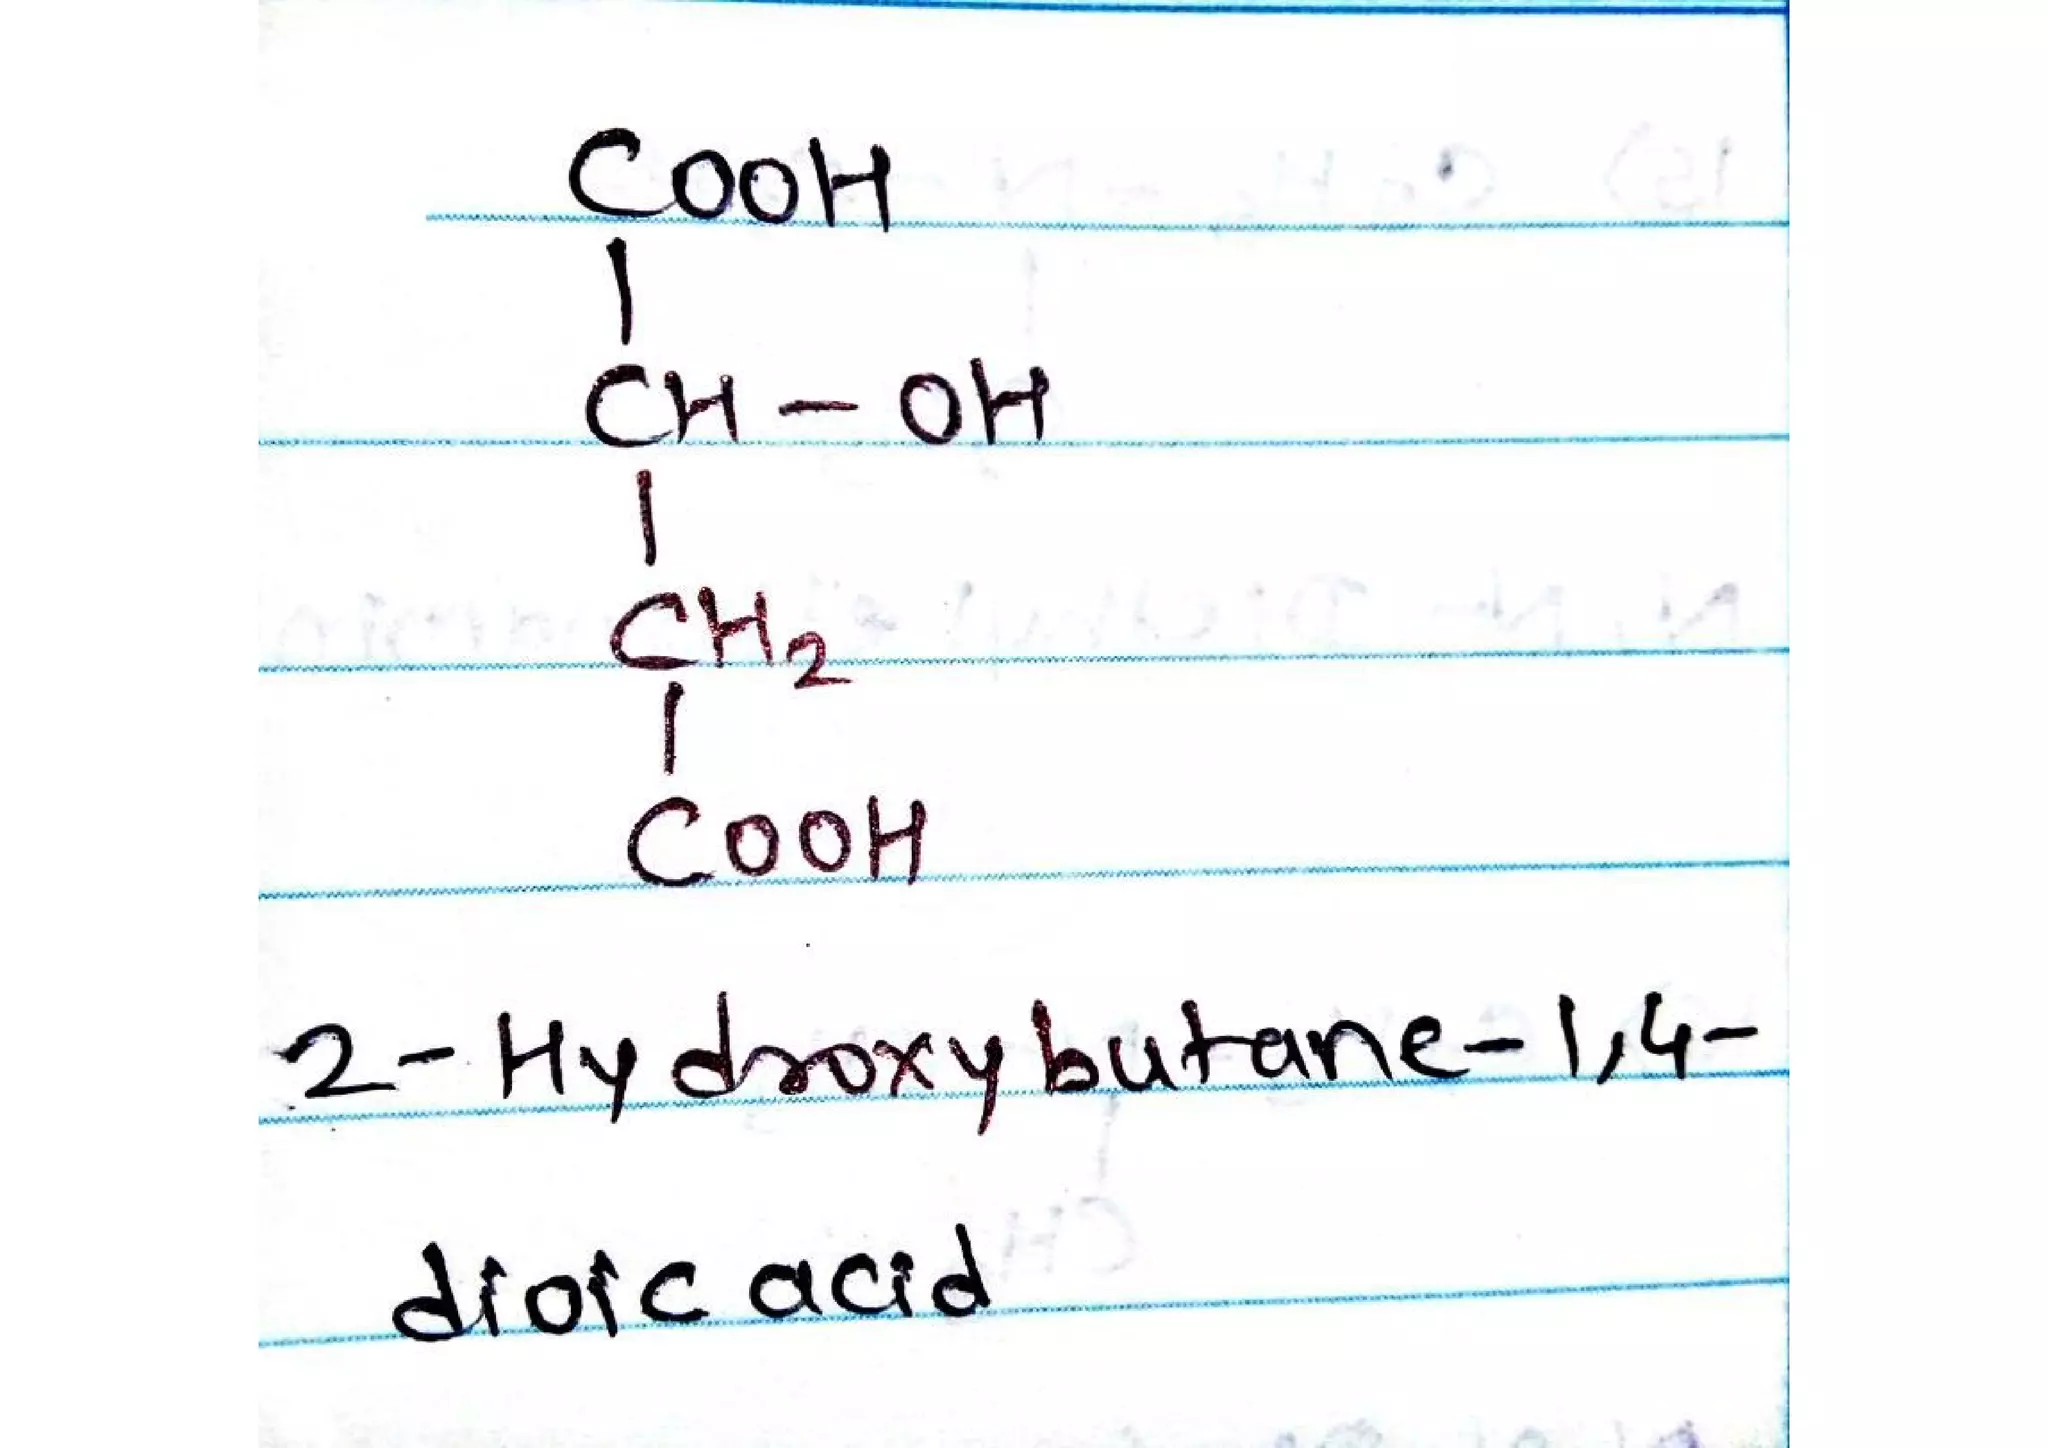 COOH
|
CH - OH
|
CH₂
|
COOH
2-Hydroxybutane-1,4-
dioic acid